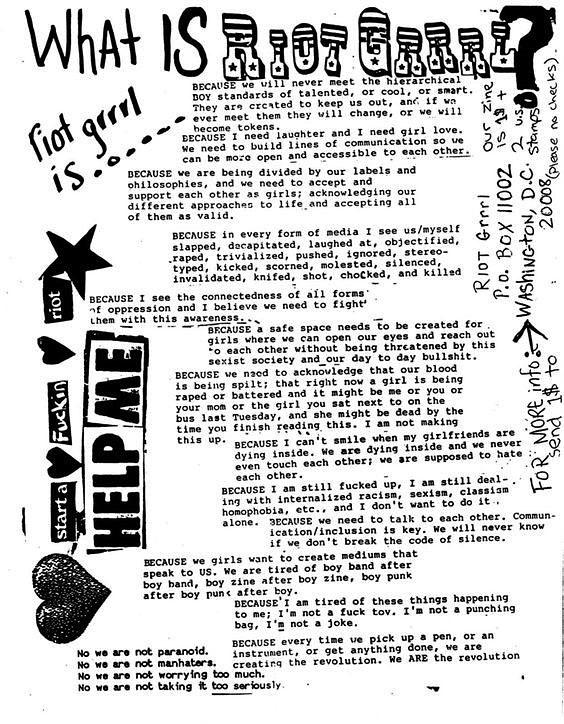 WHAT IS RIOT GRRRL?
riot grrrl
is........
BECAUSE we will never meet the hierarchical
BOY standards of talented, or cool, or smart.
They are created to keep us out, and if we
ever meet them they will change, or we will
become tokens.
BECAUSE I need laughter and I need girl love.
We need to build lines of communication so we
can be more open and accessible to each other.
BECAUSE we are being divided by our labels and
philosophies, and we need to accept and
support each other as girls; acknowledging our
different approaches to life and accepting all
of them as valid.
BECAUSE in every form of media I see us/myself
slapped, decapitated, laughed at, objectified,
raped, trivialized, pushed, ignored, stereo-
typed, kicked, scorned, molested, silenced,
invalidated, knifed, shot, chocked, and killed
BECAUSE I see the connectedness of all forms
of oppression and I believe we need to fight
them with this awareness.
BECAUSE a safe space needs to be created for
girls where we can open our eyes and reach out
to each other without being threatened by this
sexist society and our day to day bullshit.
BECAUSE we need to acknowledge that our blood
is being spilt; that right now a girl is being
raped or battered and it might be me or you or
your mom or the girl you sat next to on the
bus last Tuesday, and she might be dead by the
time you finish reading this. I am not making
this up.
BECAUSE I can't smile when my girlfriends are
dying inside. We are dying inside and we never
even touch each other; we are supposed to hate
each other.
BECAUSE I am still fucked up, I am still deal-
ing with internalized racism, sexism, classism
homophobia, etc., and I don't want to do it
alone.
BECAUSE we need to talk to each other. Commun-
ication/inclusion is key. We will never know
if we don't break the code of silence.
BECAUSE we girls want to create mediums that
speak to US. We are tired of boy band after
boy band, boy zine after boy zine, boy punk
after boy punk after boy.
BECAUSE I am tired of these things happening
to me; I'm not a fuck toy. I'm not a punching
bag, I'm not a joke.
BECAUSE every time we pick up a pen, or an
instrument, or get anything done, we are
creating the revolution. We ARE the revolution
No we are not paranoid.
No we are not manhaters.
No we are not worrying too much.
No we are not taking it too seriously.
start a
Fuckin
riot
HELP ME
FOR MORE info:
send 1$ to
Riot Grrrl
P.O. BOX 11002
WASHINGTON, D.C.
20008
our zine
is 1$ +
2 U.S.
stamps
(please no checks).